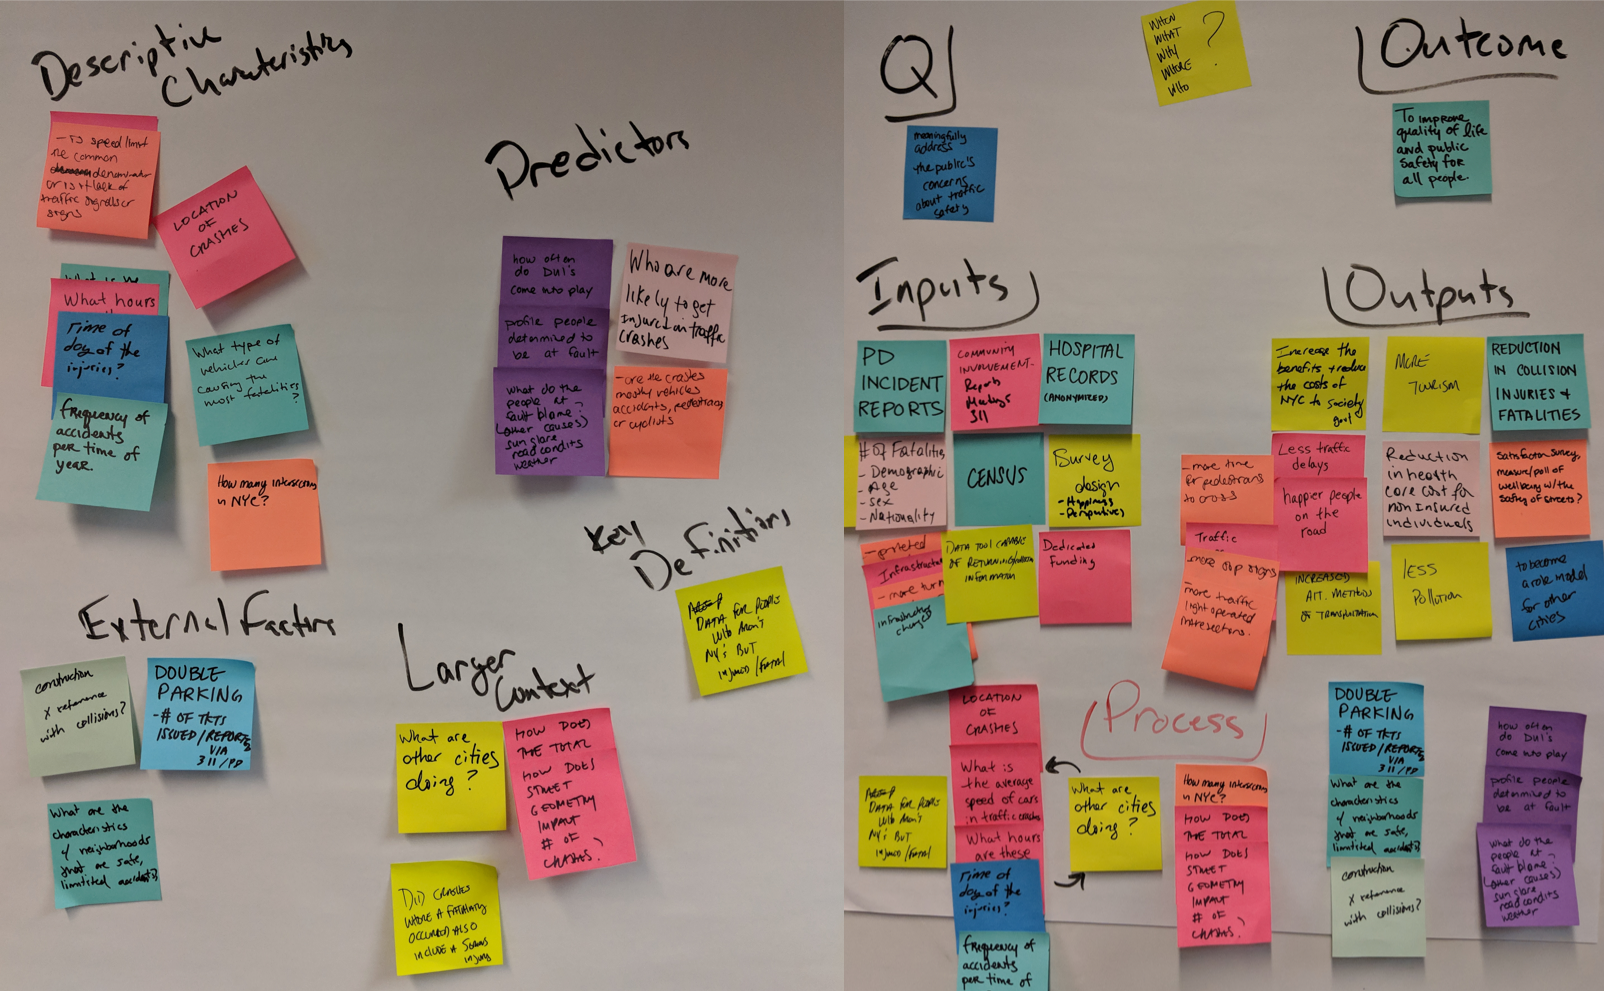 Descriptive
Characteristics
- Is speed limit
the common
denominator
or is it lack of
traffic signals or
signs
LOCATION
OF
CRASHES
What is the
What hours
Time of
day of the
injuries?
frequency of
accidents
per time of
year.
What type of
vehicles are
causing the
most fatalities
?
How many intersections
in NYC?
Predictors
how often
do DUI's
come into play
profile people
determined to
be at fault
What do the
people at
fault blame?
(other causes)
sun glare
road condits
weather
Who are more
likely to get
injured in traffic
crashes
- are the crashes
mostly vehicles
accidents, pedestrians
or cyclists
Key
Definitions
DATA FOR PEOPLE
WHO AREN'T
NY'S BUT
INJURED/FATAL
External Factors
construction
x reference
with collisions?
DOUBLE
PARKING
- # OF TKTS
ISSUED/REPORTED
VIA
311/PD
What are the
characteristics
of neighborhoods
that are safe,
limited accidents?
Larger
Context
What are
other cities
doing?
HOW DOES
THE TOTAL
HOW DOES
STREET
GEOMETRY
IMPACT
# OF
CRASHES?
DID CRASHES
WHERE A FATALITY
OCCURRED ALSO
INCLUDE A SERIOUS
INJURY
Q
meaningfully
address
the public's
concerns
about traffic
safety
WHEN
WHAT
WHY
WHERE
WHO
?
Outcome
To improve
quality of life
and public
safety for
all people.
Inputs
PD
INCIDENT
REPORTS
COMMUNITY
INVOLVEMENT-
Reports
Meetings
311
HOSPITAL
RECORDS
(ANONYMIZED)
# of Fatalities
- Demographic
- Age
- Sex
- Nationality
CENSUS
Survey
design
- Happiness
- Perspectives
Infrastructure
- more turn
infrastructure
changes
DATA TOOL CAPABLE
OF RETURNING
INFORMATION
Dedicated
Funding
Outputs
Increase the
benefits + reduce
the costs of
NYC to society
goal
MORE
TOURISM
REDUCTION
IN COLLISION
INJURIES &
FATALITIES
- more time
for pedestrians
to cross
Less traffic
delays
happier people
on the
road
Reduction
in health
care cost for
non insured
individuals
Satisfaction survey,
measure/poll of
wellbeing w/ the
safety of streets?
Traffic
more stop signs
more traffic
light operated
intersections.
INCREASED
ALT. METHOD
OF TRANSPORTATION
LESS
POLLUTION
to become
a role model
for other
cities
Process
DATA FOR PEOPLE
WHO AREN'T
NY'S BUT
INJURED/FATAL
LOCATION
OF
CRASHES
What is
the average
speed of cars
in traffic crashes
What hours
are these
Time of
day of the
injuries?
frequency of
accidents
per time of
What are
other cities
doing?
How many intersections
in NYC?
HOW DOES
THE TOTAL
HOW DOES
STREET
GEOMETRY
IMPACT
# OF
CRASHES?
DOUBLE
PARKING
- # OF TKTS
ISSUED/REPORTED
VIA
311/PD
What are the
characteristics
of neighborhoods
that are safe,
limited accidents?
construction
x reference
with collisions?
how often
do DUI's
come into play
profile people
determined to
be at fault
What do the
people at
fault blame?
(other causes)
sun glare
road condits
weather